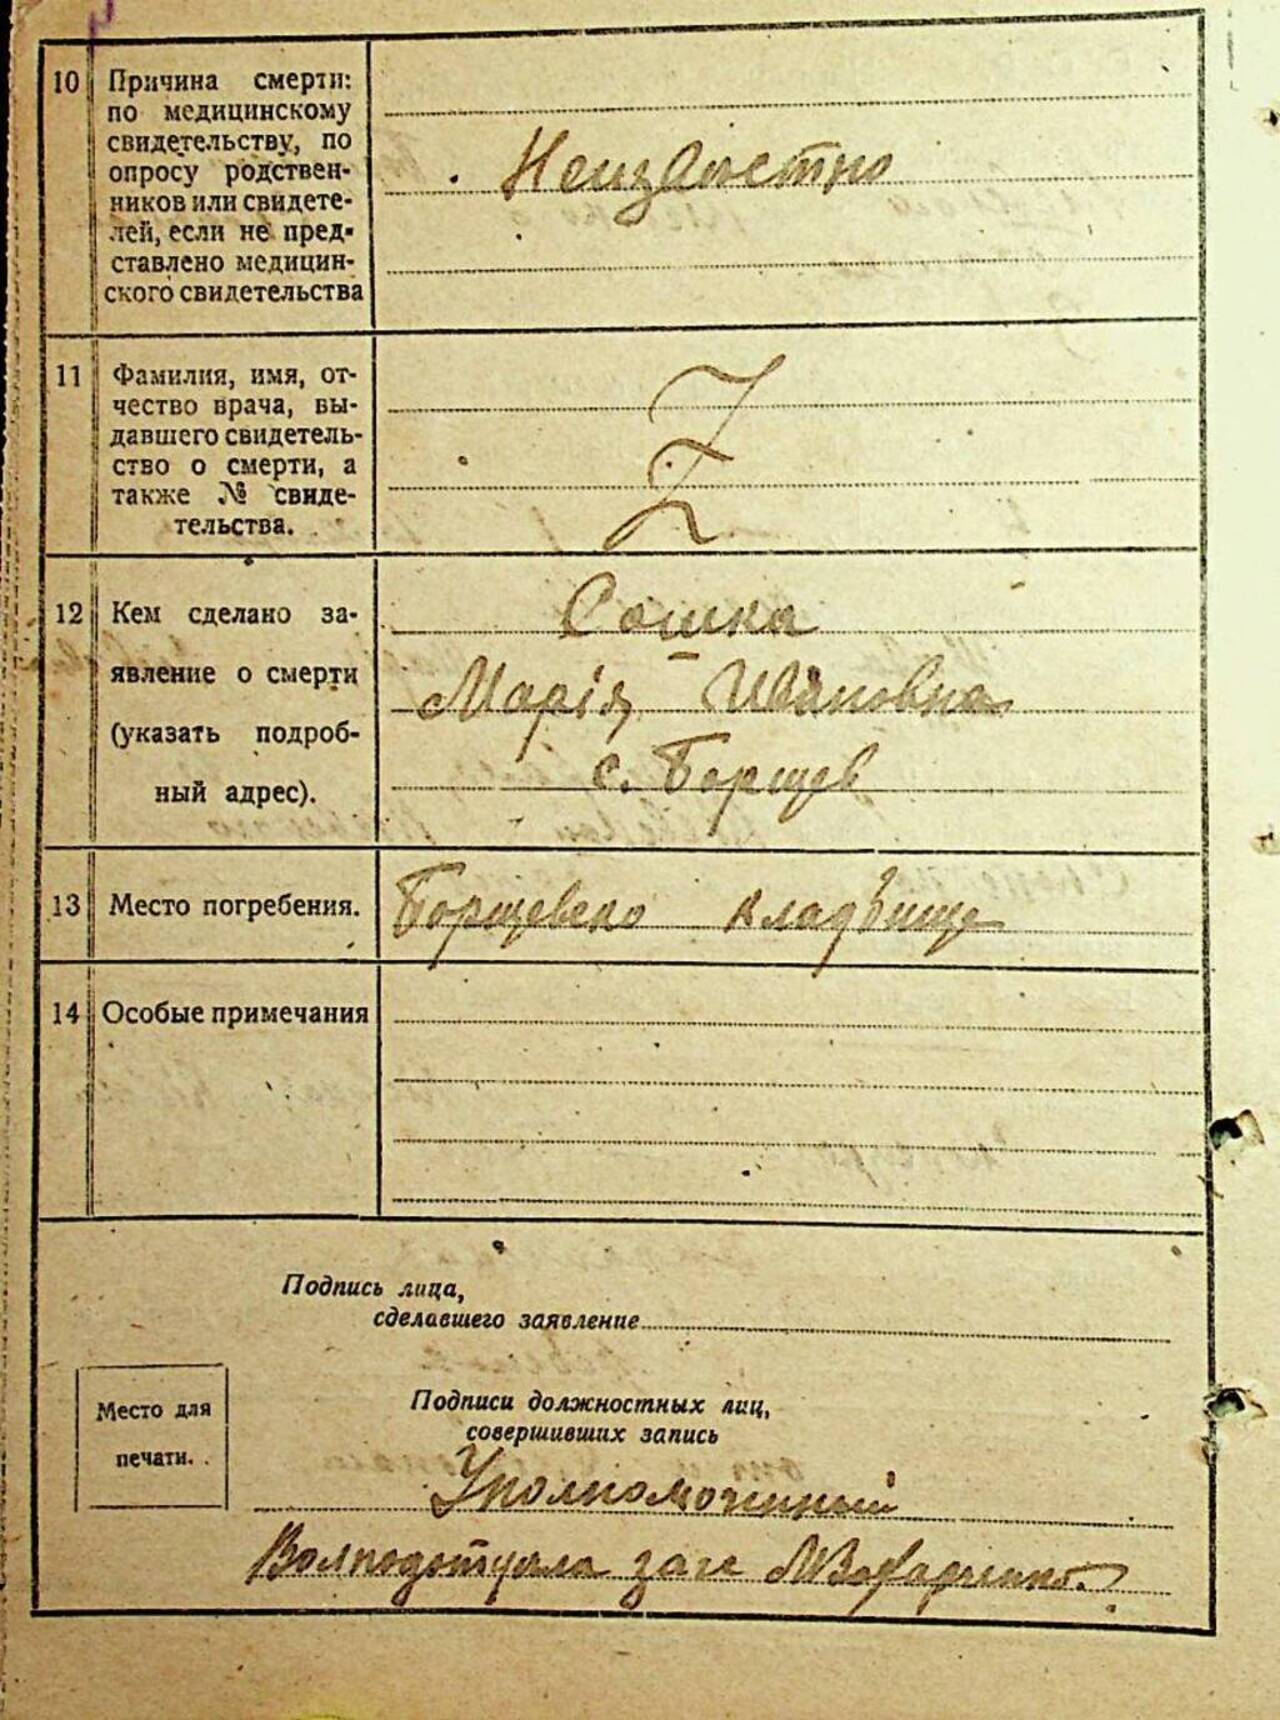 10 Причина смерти:
по медицинскому
свидетельству, по
опросу родствен-
ников или свидете-
лей, если не пред-
ставлено медицин-
ского свидетельства
Неизвестно
11 Фамилия, имя, от-
чество врача, вы-
давшего свидетель-
ство о смерти, а
также № свиде-
тельства.
Z
12 Кем сделано за-
явление о смерти
(указать подроб-
ный адрес).
Сошка
Марія Ивановна
с. Борщев
13 Место погребения.
Борщевско кладбище
14 Особые примечания
Подпись лица,
сделавшего заявление
Место для
печати.
Подписи должностных лиц,
совершивших запись
Уполномоченный
загс